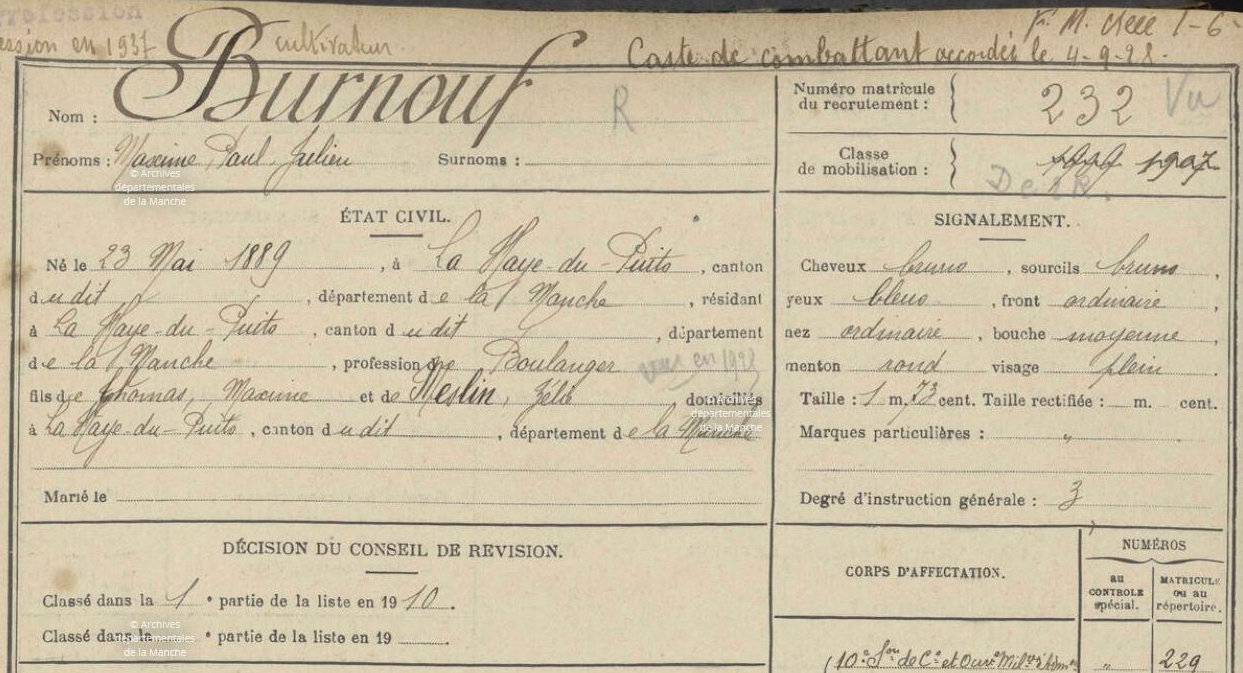 Profession
ession en 1937 cultivateur.
Carte de combattant accordée le 4-9-28.
Nom : Burnouf R
Prénoms : Maxime, Paul, Julien Surnoms :
Numéro matricule du recrutement : 232 Vu
Classe de mobilisation : 1907
© Archives
départementales
de la Manche
ÉTAT CIVIL.
Né le 23 Mai 1889, à La Haye-du-Puits, canton
dudit, département de la Manche, résidant
à La Haye-du-Puits, canton dudit, département
de la Manche, profession de Boulanger
fils de Thomas, Maxime et de Meslin, Zélie domiciliés
à La Haye-du-Puits, canton dudit, département de la Manche
© Archives
départementales
de la Manche
Marié le
SIGNALEMENT.
Cheveux bruns, sourcils bruns,
yeux bleus, front ordinaire,
nez ordinaire, bouche moyenne
menton rond visage plein.
Taille : 1 m. 73 cent. Taille rectifiée : m. cent.
Marques particulières : "
Degré d'instruction générale : 3
DÉCISION DU CONSEIL DE REVISION.
Classé dans la 1e partie de la liste en 1910.
Classé dans la e partie de la liste en 19
© Archives
départementales
de la Manche
CORPS D'AFFECTATION.
NUMÉROS
au CONTROLE spécial.
MATRICULE ou au répertoire.
10e Son de Cis et Ouvrs Milres d'Admon " 229